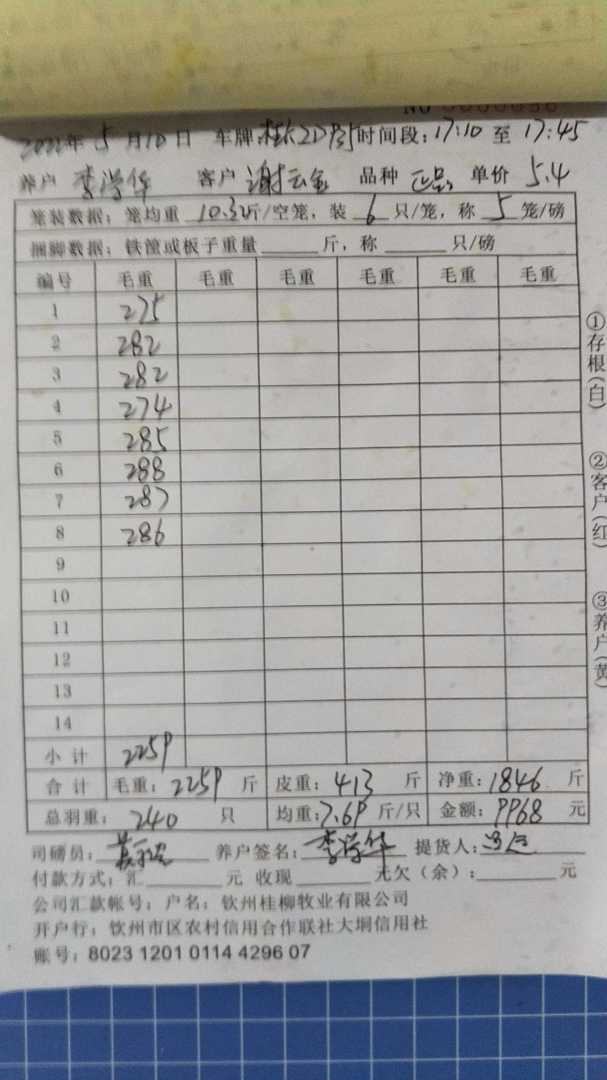 2022年 5月10日 车牌 时间段:17:10 至 17:45
养户 李学华 客户 谢云金 品种 正品 单价 5.4
笼装数据: 笼均重 10.3斤/空笼, 装 6 只/笼, 称 5 笼/磅
捆脚数据: 铁篮或板子重量 斤, 称 只/磅
编号 毛重 毛重 毛重 毛重 毛重 毛重
1 275
2 282
3 282
4 274
5 285
6 288
7 287
8 286
9
10
11
12
13
14
小计 2259
合计 毛重: 2259 斤 皮重: 413 斤 净重: 1846 斤
总羽重: 240 只 均重: 7.69 斤/只 金额: 9968 元
司磅员: 养户签名: 李学华 提货人:
付款方式: 汇 元 收现 元欠(余): 元
公司汇款帐号: 户名: 钦州桂柳牧业有限公司
开户行: 钦州市区农村信用合作联社大垌信用社
账号: 8023 1201 0114 4296 07
①存根(白)
②客户(红)
③养户(黄)